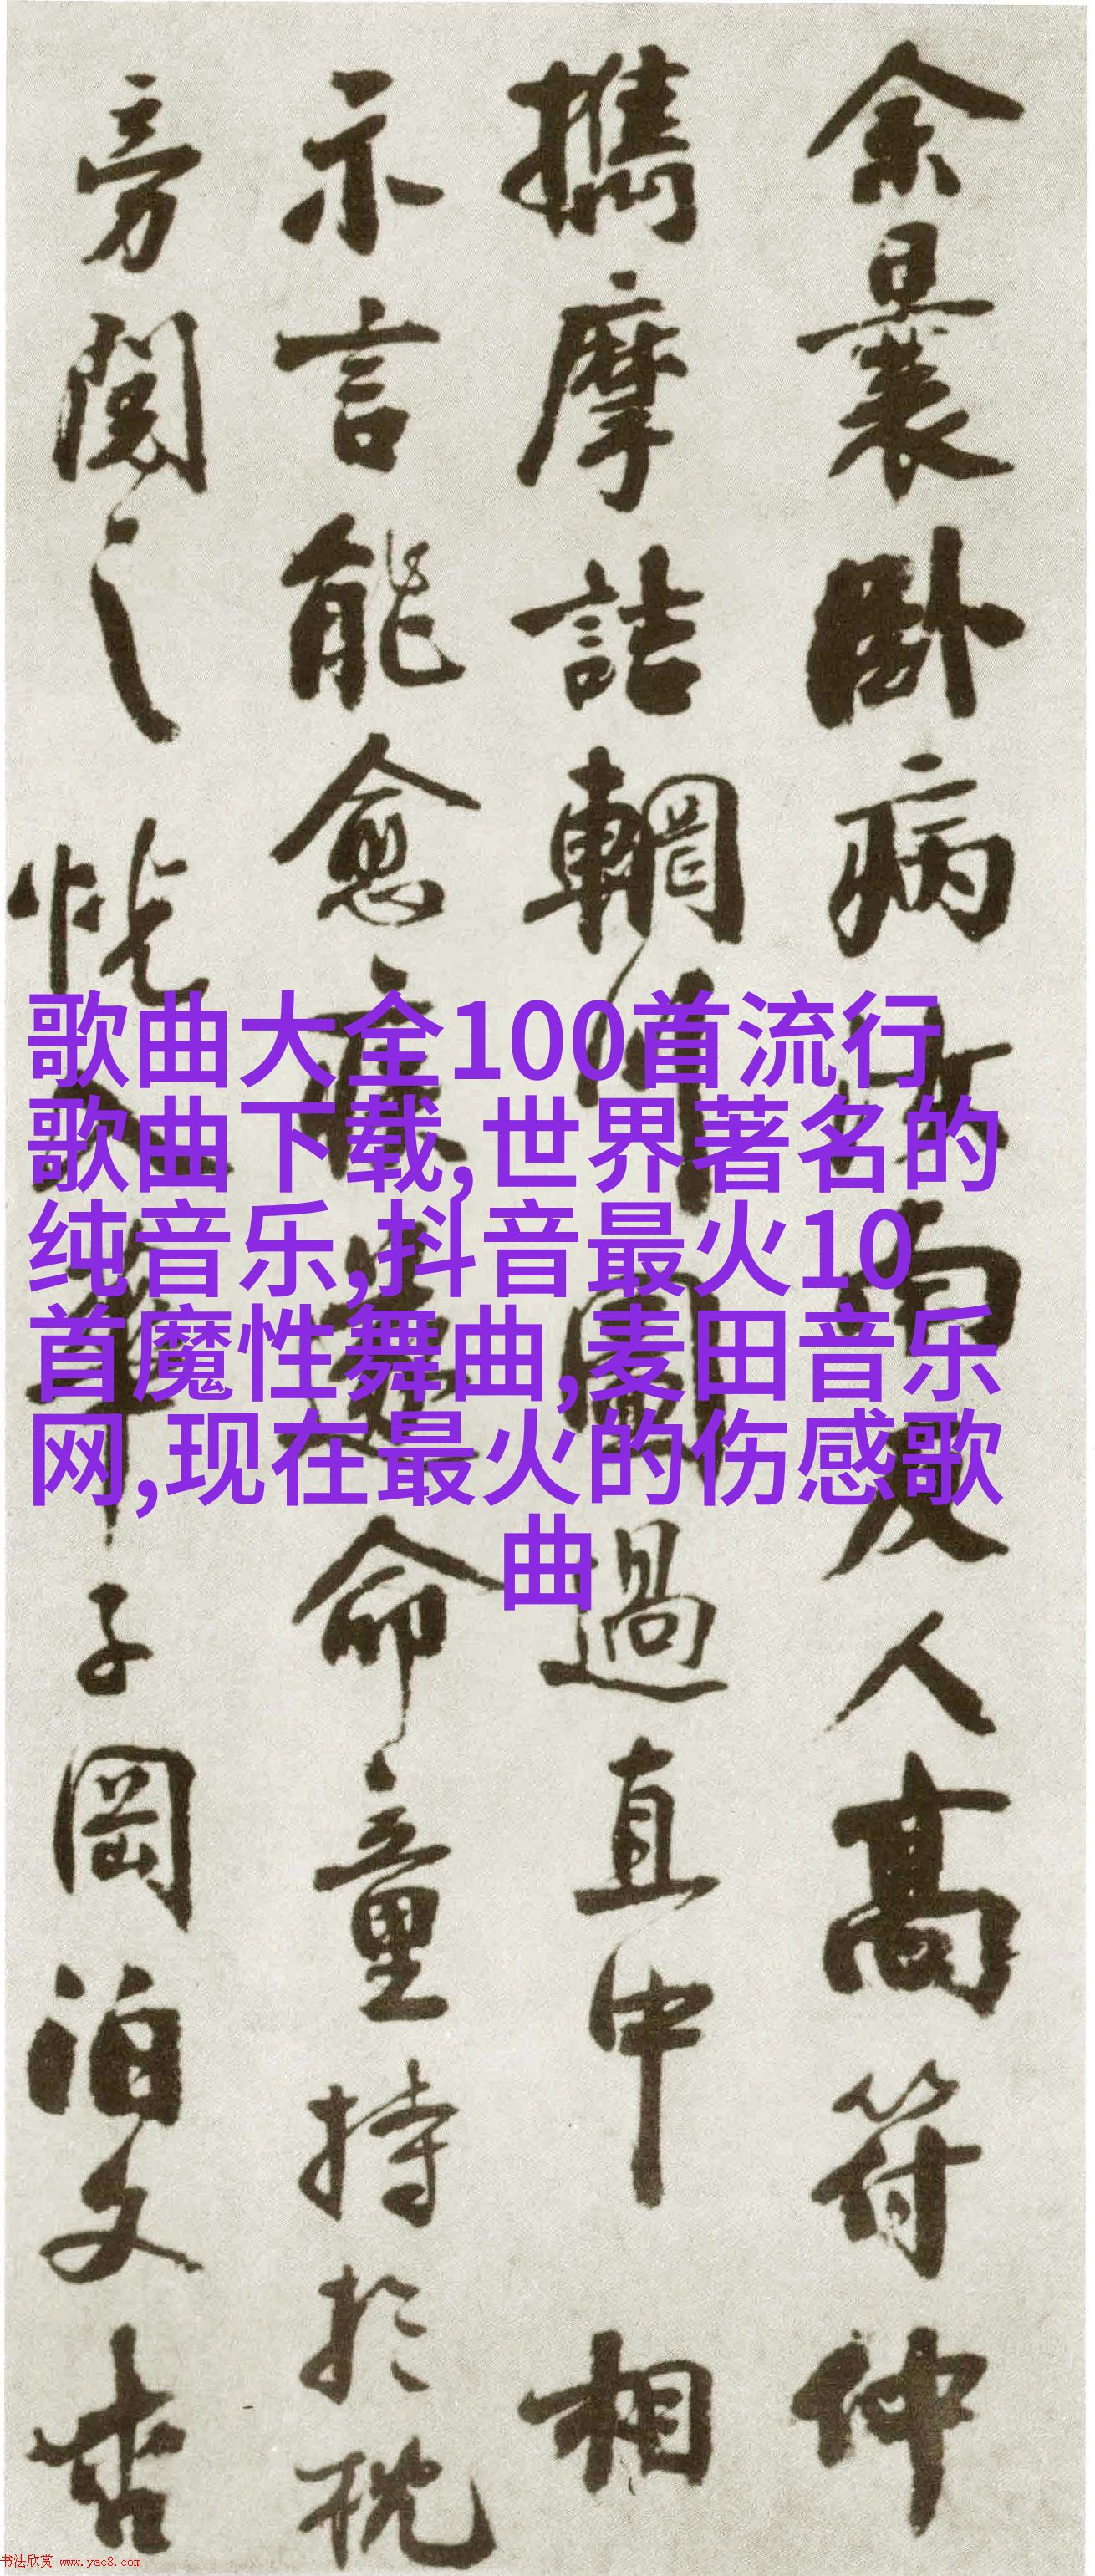 余曩卧病汝南友人高符仲
攜摩詰輞川圖過直中相
示言能愈疾遂命童持於枕
旁閱之恍入華子岡泊文杏
歌曲大全100首流行
歌曲下载,世界著名的
纯音乐,抖音最火10
首魔性舞曲,麦田音乐
网,现在最火的伤感歌
曲
书法欣赏 www.yac8.com